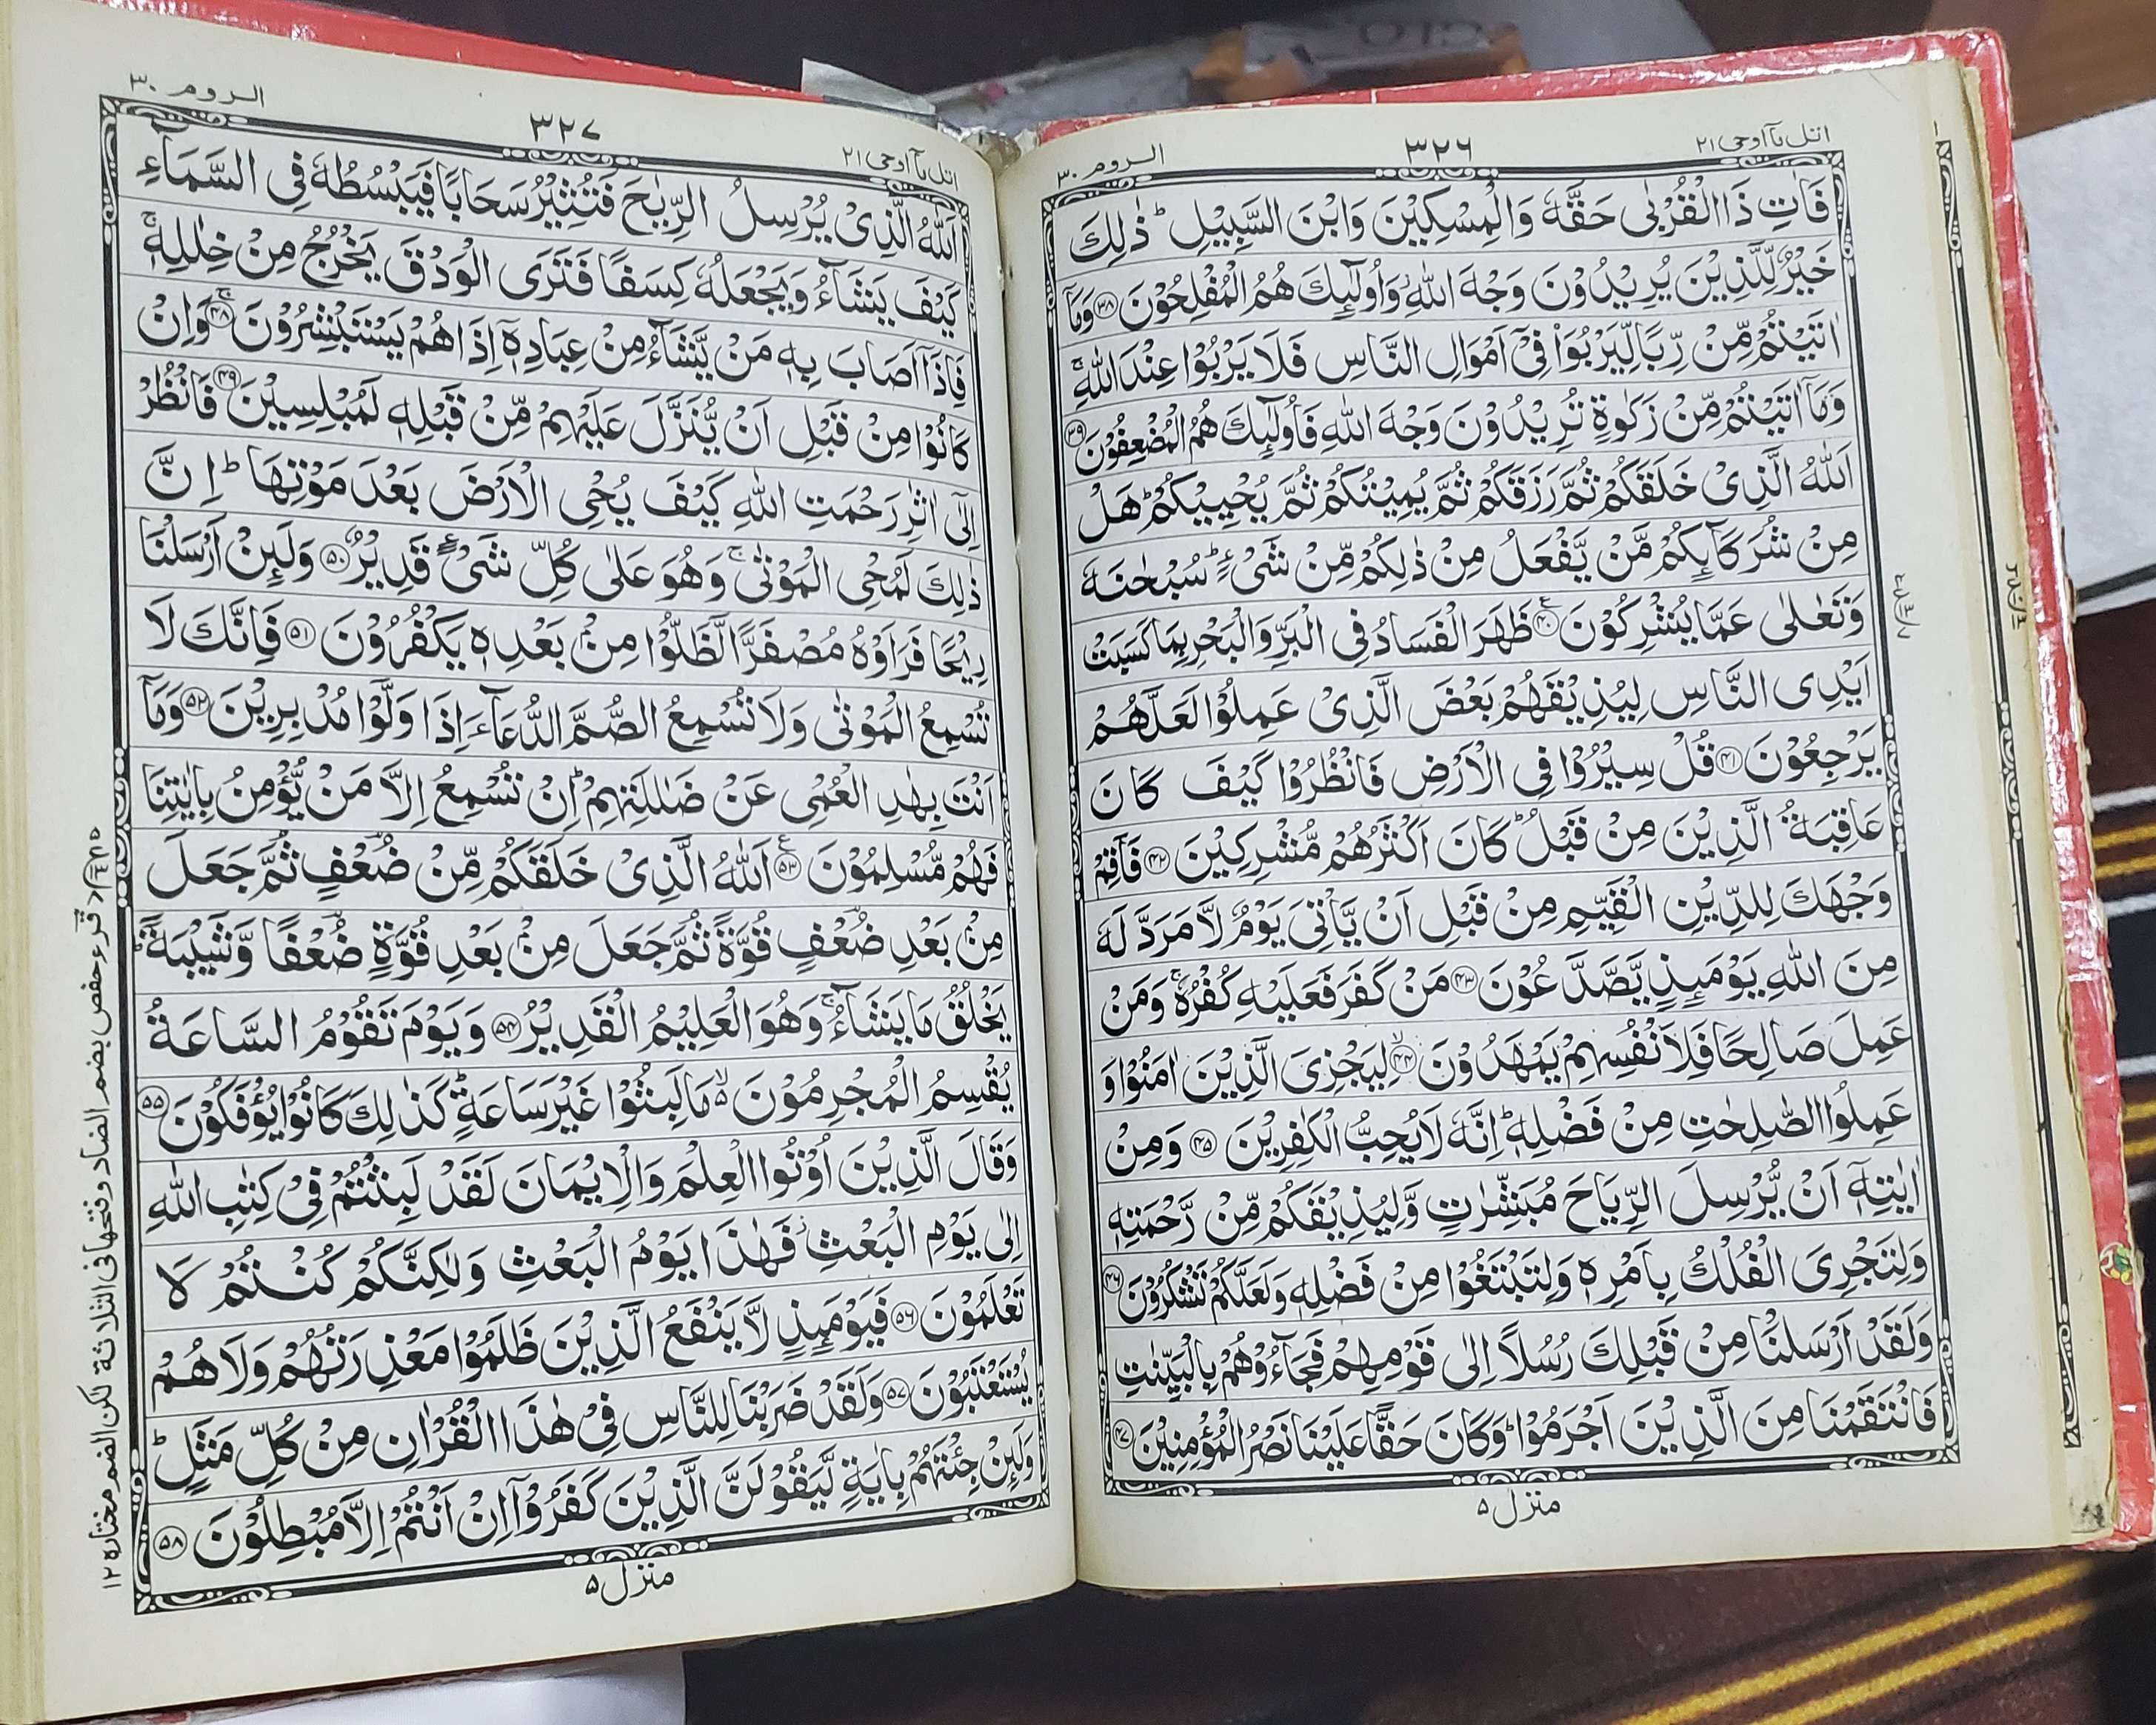 اتل مآ اوحی ۲۱
۳۲۶
الروم ۳۰
فَاٰتِ ذَا الْقُرْبٰى حَقَّهٗ وَالْمِسْكِيْنَ وَابْنَ السَّبِيْلِ ؕ ذٰلِكَ
خَيْرٌ لِّلَّذِيْنَ يُرِيْدُوْنَ وَجْهَ اللّٰهِ ؗ وَاُولٰٓئِكَ هُمُ الْمُفْلِحُوْنَ ﴿۳۸﴾ وَمَاۤ
اٰتَيْتُمْ مِّنْ رِّبًا لِّيَرْبُوَا۠ فِيْۤ اَمْوَالِ النَّاسِ فَلَا يَرْبُوْا عِنْدَ اللّٰهِ ۚ
وَمَاۤ اٰتَيْتُمْ مِّنْ زَكٰوةٍ تُرِيْدُوْنَ وَجْهَ اللّٰهِ فَاُولٰٓئِكَ هُمُ الْمُضْعِفُوْنَ ﴿۳۹﴾
اَللّٰهُ الَّذِيْ خَلَقَكُمْ ثُمَّ رَزَقَكُمْ ثُمَّ يُمِيْتُكُمْ ثُمَّ يُحْيِيْكُمْ ؕ هَلْ
مِنْ شُرَكَآئِكُمْ مَّنْ يَّفْعَلُ مِنْ ذٰلِكُمْ مِّنْ شَيْءٍ ؕ سُبْحٰنَهٗ
وَتَعٰلٰى عَمَّا يُشْرِكُوْنَ ﴿۴۰﴾ ظَهَرَ الْفَسَادُ فِي الْبَرِّ وَالْبَحْرِ بِمَا كَسَبَتْ
اَيْدِي النَّاسِ لِيُذِيْقَهُمْ بَعْضَ الَّذِيْ عَمِلُوْا لَعَلَّهُمْ
يَرْجِعُوْنَ ﴿۴۱﴾ قُلْ سِيْرُوْا فِي الْاَرْضِ فَانْظُرُوْا كَيْفَ كَانَ
عَاقِبَةُ الَّذِيْنَ مِنْ قَبْلُ ؕ كَانَ اَكْثَرُهُمْ مُّشْرِكِيْنَ ﴿۴۲﴾ فَاَقِمْ
وَجْهَكَ لِلدِّيْنِ الْقَيِّمِ مِنْ قَبْلِ اَنْ يَّاْتِيَ يَوْمٌ لَّا مَرَدَّ لَهٗ
مِنَ اللّٰهِ يَوْمَئِذٍ يَّصَّدَّعُوْنَ ﴿۴۳﴾ مَنْ كَفَرَ فَعَلَيْهِ كُفْرُهٗ ۚ وَمَنْ
عَمِلَ صَالِحًا فَلِاَنْفُسِهِمْ يَمْهَدُوْنَ ﴿۴۴﴾ۙ لِيَجْزِيَ الَّذِيْنَ اٰمَنُوْا وَ
عَمِلُوا الصّٰلِحٰتِ مِنْ فَضْلِهٖ ؕ اِنَّهٗ لَا يُحِبُّ الْكٰفِرِيْنَ ﴿۴۵﴾ وَمِنْ
اٰيٰتِهٖۤ اَنْ يُّرْسِلَ الرِّيَاحَ مُبَشِّرٰتٍ وَّلِيُذِيْقَكُمْ مِّنْ رَّحْمَتِهٖ
وَلِتَجْرِيَ الْفُلْكُ بِاَمْرِهٖ وَلِتَبْتَغُوْا مِنْ فَضْلِهٖ وَلَعَلَّكُمْ تَشْكُرُوْنَ ﴿۴۶﴾
وَلَقَدْ اَرْسَلْنَا مِنْ قَبْلِكَ رُسُلًا اِلٰى قَوْمِهِمْ فَجَآءُوْهُمْ بِالْبَيِّنٰتِ
فَانْتَقَمْنَا مِنَ الَّذِيْنَ اَجْرَمُوْا ؕ وَكَانَ حَقًّا عَلَيْنَا نَصْرُ الْمُؤْمِنِيْنَ ﴿۴۷﴾
منزل ۵
اتل مآ اوحی ۲۱
۳۲۷
الروم ۳۰
اَللّٰهُ الَّذِيْ يُرْسِلُ الرِّيٰحَ فَتُثِيْرُ سَحَابًا فَيَبْسُطُهٗ فِي السَّمَآءِ
كَيْفَ يَشَآءُ وَيَجْعَلُهٗ كِسَفًا فَتَرَى الْوَدْقَ يَخْرُجُ مِنْ خِلٰلِهٖ ۚ
فَاِذَاۤ اَصَابَ بِهٖ مَنْ يَّشَآءُ مِنْ عِبَادِهٖۤ اِذَا هُمْ يَسْتَبْشِرُوْنَ ﴿۴۸﴾ۚ وَاِنْ
كَانُوْا مِنْ قَبْلِ اَنْ يُّنَزَّلَ عَلَيْهِمْ مِّنْ قَبْلِهٖ لَمُبْلِسِيْنَ ﴿۴۹﴾ فَانْظُرْ
اِلٰۤى اٰثٰرِ رَحْمَتِ اللّٰهِ كَيْفَ يُحْيِ الْاَرْضَ بَعْدَ مَوْتِهَا ؕ اِنَّ
ذٰلِكَ لَمُحْيِ الْمَوْتٰى ۚ وَهُوَ عَلٰى كُلِّ شَيْءٍ قَدِيْرٌ ﴿۵۰﴾ وَلَئِنْ اَرْسَلْنَا
رِيْحًا فَرَاَوْهُ مُصْفَرًّا لَّظَلُّوْا مِنْۢ بَعْدِهٖ يَكْفُرُوْنَ ﴿۵۱﴾ فَاِنَّكَ لَا
تُسْمِعُ الْمَوْتٰى وَلَا تُسْمِعُ الصُّمَّ الدُّعَآءَ اِذَا وَلَّوْا مُدْبِرِيْنَ ﴿۵۲﴾ وَمَاۤ
اَنْتَ بِهٰدِ الْعُمْيِ عَنْ ضَلٰلَتِهِمْ ؕ اِنْ تُسْمِعُ اِلَّا مَنْ يُّؤْمِنُ بِاٰيٰتِنَا
فَهُمْ مُّسْلِمُوْنَ ﴿۵۳﴾ اَللّٰهُ الَّذِيْ خَلَقَكُمْ مِّنْ ضُعْفٍ ثُمَّ جَعَلَ
مِنْۢ بَعْدِ ضُعْفٍ قُوَّةً ثُمَّ جَعَلَ مِنْۢ بَعْدِ قُوَّةٍ ضُعْفًا وَّشَيْبَةً ؕ
يَخْلُقُ مَا يَشَآءُ ۚ وَهُوَ الْعَلِيْمُ الْقَدِيْرُ ﴿۵۴﴾ وَيَوْمَ تَقُوْمُ السَّاعَةُ
يُقْسِمُ الْمُجْرِمُوْنَ ۙ۬ مَا لَبِثُوْا غَيْرَ سَاعَةٍ ؕ كَذٰلِكَ كَانُوْا يُؤْفَكُوْنَ ﴿۵۵﴾
وَقَالَ الَّذِيْنَ اُوْتُوا الْعِلْمَ وَالْاِيْمَانَ لَقَدْ لَبِثْتُمْ فِيْ كِتٰبِ اللّٰهِ
اِلٰى يَوْمِ الْبَعْثِ ؗ فَهٰذَا يَوْمُ الْبَعْثِ وَلٰكِنَّكُمْ كُنْتُمْ لَا
تَعْلَمُوْنَ ﴿۵۶﴾ فَيَوْمَئِذٍ لَّا يَنْفَعُ الَّذِيْنَ ظَلَمُوْا مَعْذِرَتُهُمْ وَلَا هُمْ
يُسْتَعْتَبُوْنَ ﴿۵۷﴾ وَلَقَدْ ضَرَبْنَا لِلنَّاسِ فِيْ هٰذَا الْقُرْاٰنِ مِنْ كُلِّ مَثَلٍ ؕ
وَلَئِنْ جِئْتَهُمْ بِاٰيَةٍ لَّيَقُوْلَنَّ الَّذِيْنَ كَفَرُوْۤا اِنْ اَنْتُمْ اِلَّا مُبْطِلُوْنَ ﴿۵۸﴾
منزل ۵
قرء حفص بضم الضاد وفتحها فی الثلاثة لکن الضم مختاره ۱۲